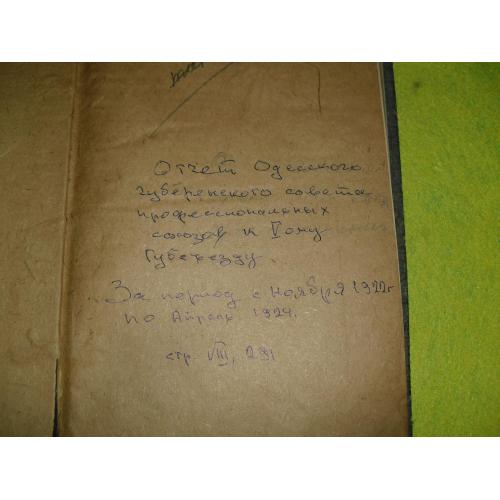 Отчет Одесского
губернского совета
профессиональных
союзов к V ому
Губсъезду
За период с Ноября 1922 г
по Апрель 1924.
стр. VIII, 291